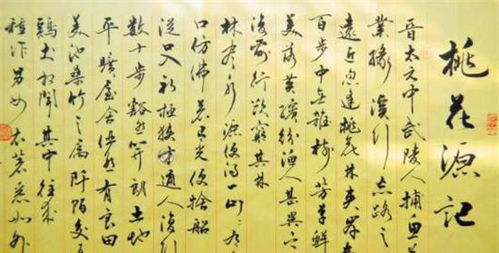 桃花源记
晋太元中武陵人捕鱼
業缘溪行忘路之
遠近忽逢桃花林夹岸
百步中無雜樹芳草鲜
美落英缤纷渔人甚異之
復前行欲窮其林
林尽水源便得一山山有
口仿佛若有光便捨船
從口入初极狭才通人復行
数十步豁然開朗土地
平曠屋舍俨然有良田
美池桑竹之属阡陌交
鸡犬相闻其中往来
種作男女衣著悉如外